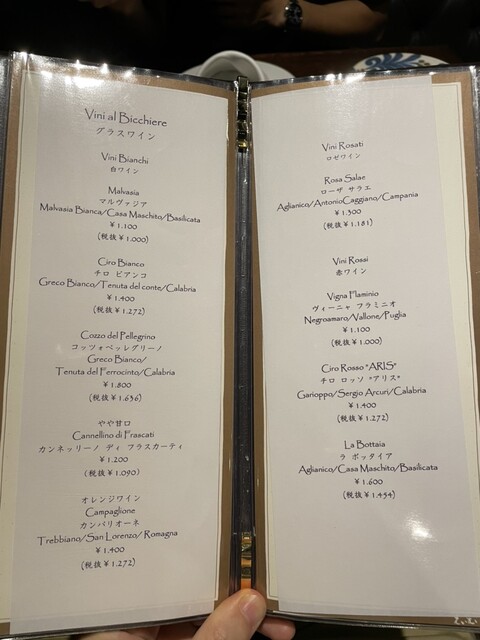 Vini al Bicchiere
グラスワイン
Vini Bianchi
白ワイン
Malvasia
マルヴァジア
Malvasia Bianca/Casa Maschito/Basilicata
¥1.100
(税抜¥1.000)
Ciro Bianco
チロ ビアンコ
Greco Bianco/Tenuta del conte/Calabria
¥1.400
(税抜¥1.272)
Cozzo del Pellegrino
コッツォペッレグリーノ
Greco Bianco/
Tenuta del Ferrocinto/Calabria
¥1.800
(税抜¥1.636)
やや甘口
Cannellino di Frascati
カンネッリーノ ディ フラスカーティ
¥1.200
(税抜¥1.090)
オレンジワイン
Campaglione
カンパリオーネ
Trebbiano/San Lorenzo/ Romagna
¥1.400
(税抜¥1.272)
Vini Rosati
ロゼワイン
Rosa Salae
ローザ サラエ
Aglianico/AntonioCaggiano/Campania
¥1.300
(税抜¥1.181)
Vini Rossi
赤ワイン
Vigna Flaminio
ヴィーニャ フラミニオ
Negroamaro/Vallone/Puglia
¥1.100
(税抜¥1.000)
Ciro Rosso "ARIS"
チロ ロッソ "アリス"
Garioppo/Sergio Arcuri/Calabria
¥1.400
(税抜¥1.272)
La Bottaia
ラ ボッタイア
Aglianico/Casa Maschito/Basilicata
¥1.600
(税抜¥1.454)